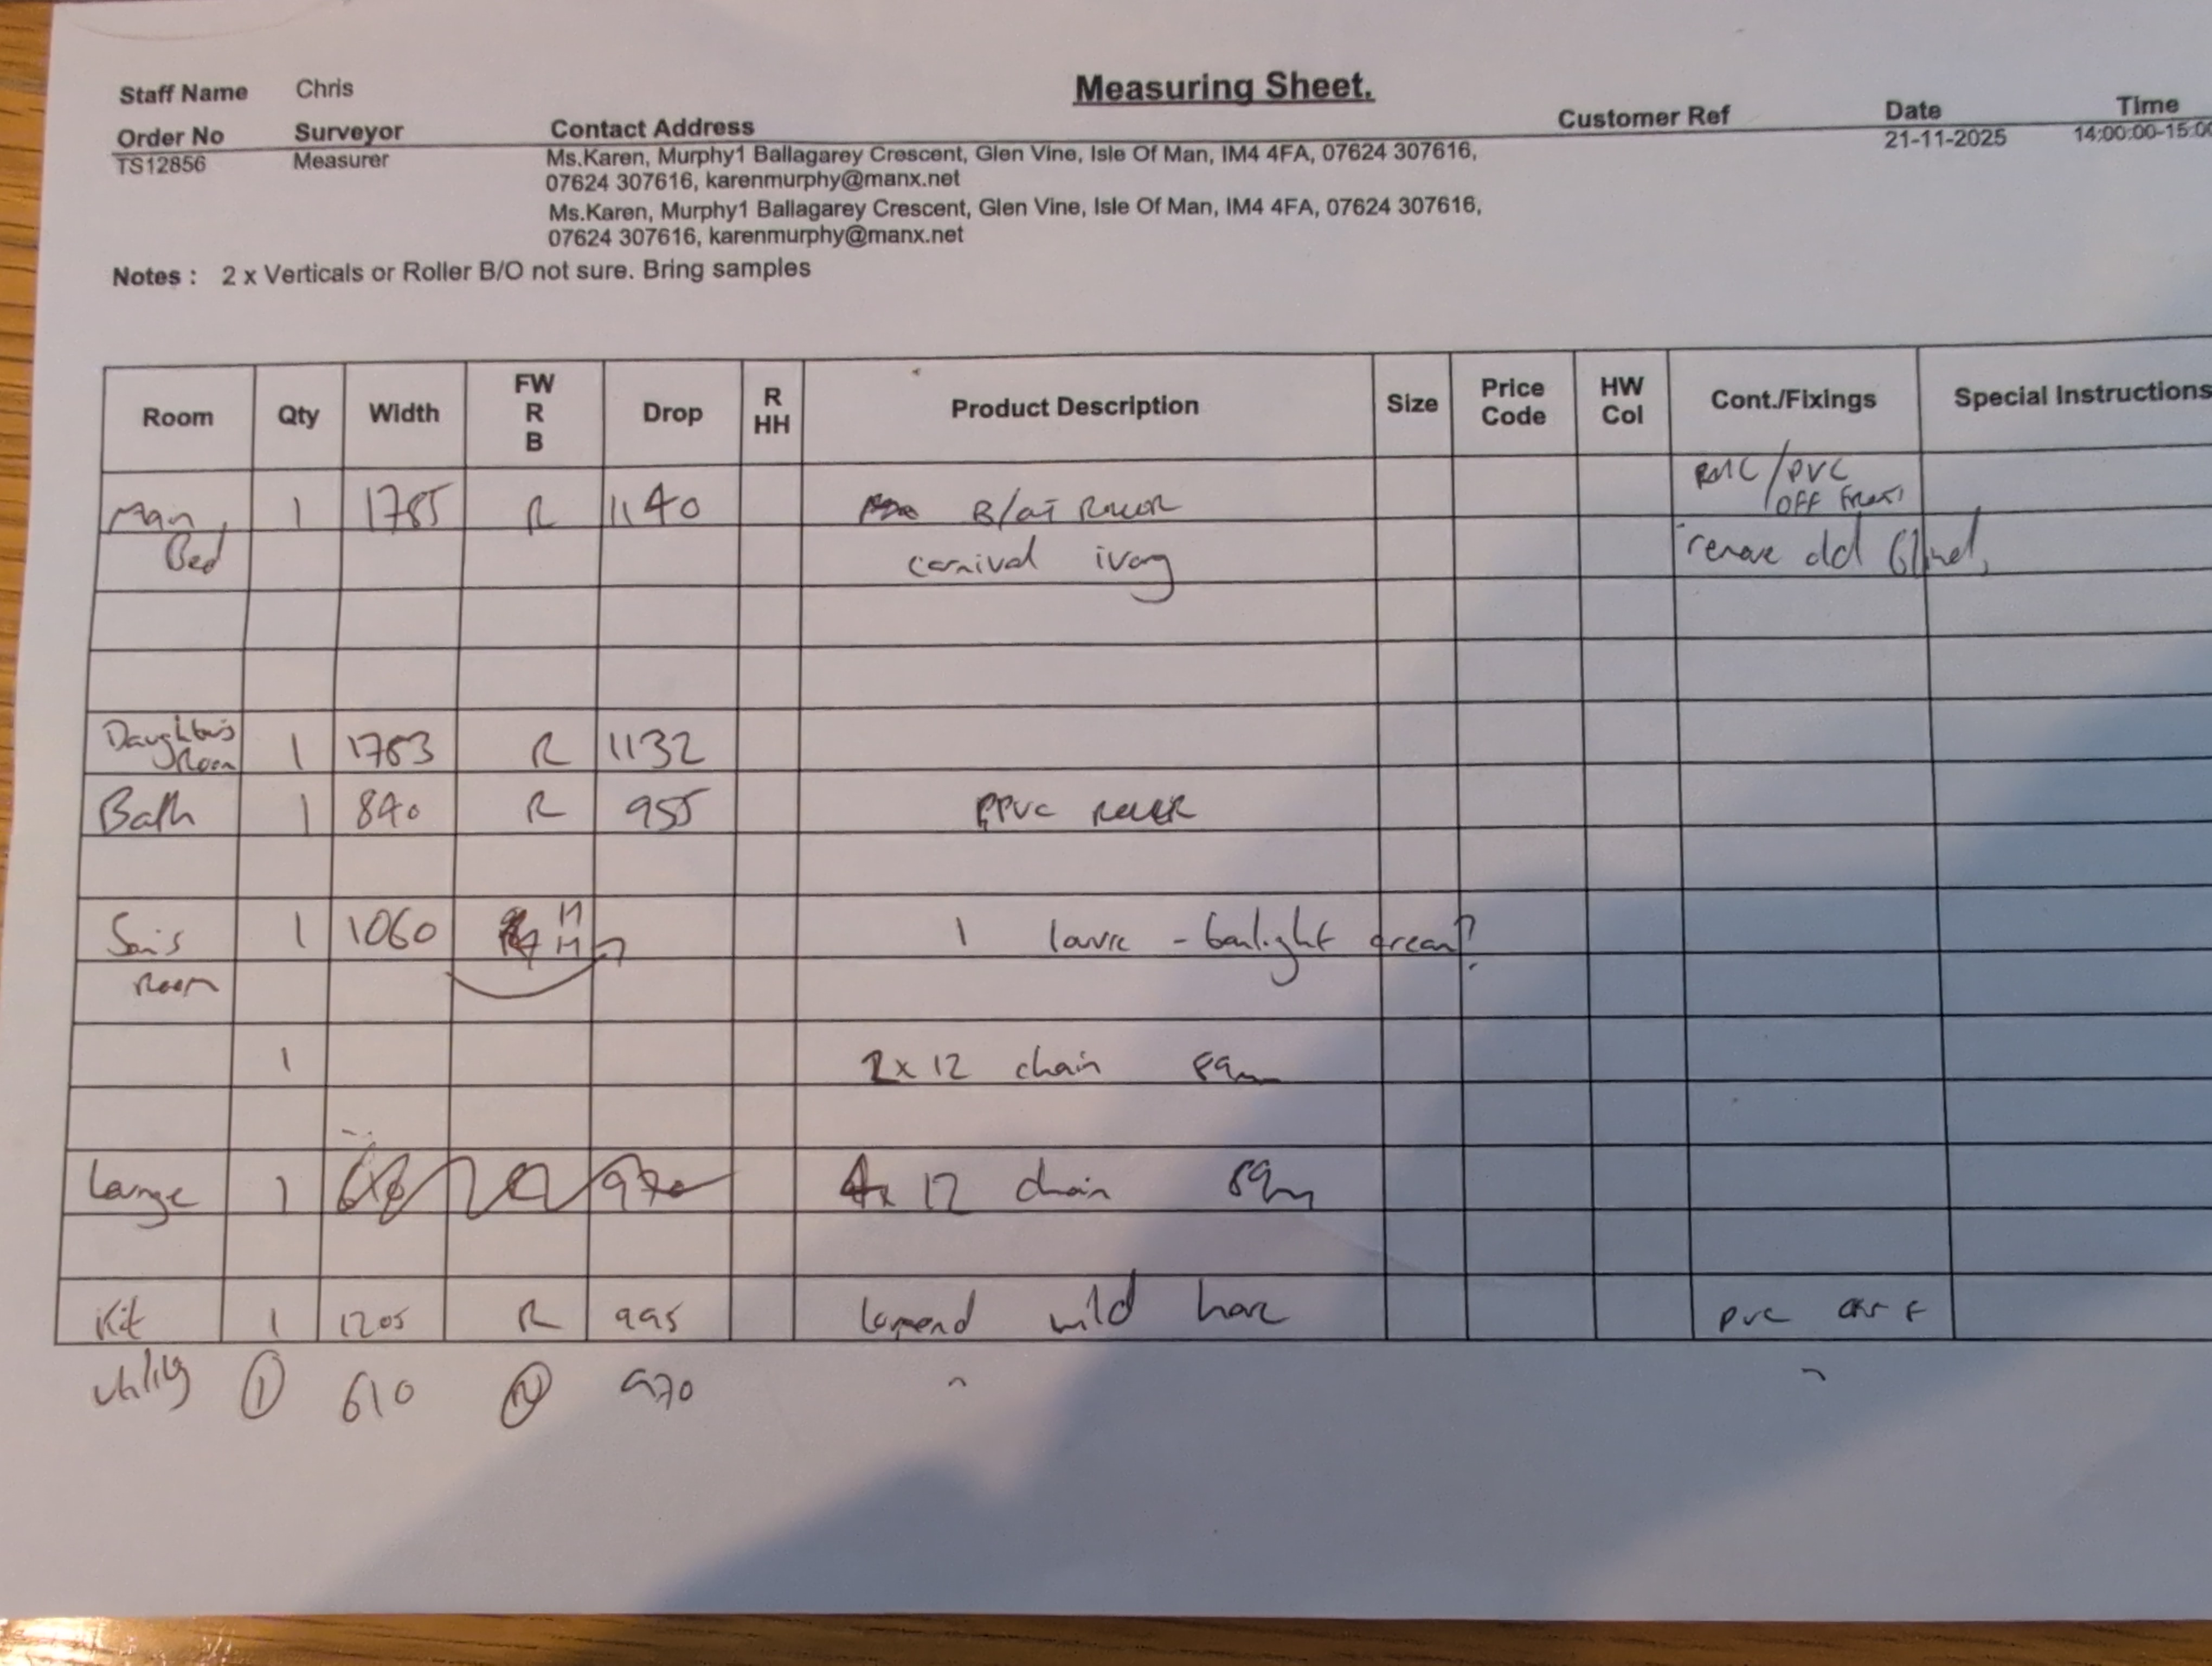 Measuring Sheet.
Staff Name Chris
Order No Surveyor Contact Address Customer Ref Date Time
TS12856 Measurer Ms.Karen, Murphy1 Ballagarey Crescent, Glen Vine, Isle Of Man, IM4 4FA, 07624 307616, 21-11-2025 14:00:00-15:00
07624 307616, karenmurphy@manx.net
Ms.Karen, Murphy1 Ballagarey Crescent, Glen Vine, Isle Of Man, IM4 4FA, 07624 307616,
07624 307616, karenmurphy@manx.net
Notes : 2 x Verticals or Roller B/O not sure. Bring samples
Room Qty Width FW R B Drop R HH Product Description Size Price Code HW Col Cont./Fixings Special Instructions
1 R 1140 PVC
Bed carnival ivory remove old
Daughter's Room 1 R 1132
Bath 1 840 R 955
Son's 1 1060 1
Room
1 x 12 chain 89m
1 12 chain 89m
Kit 1 1205 R 995 wild PVC
utility 1 610 R 970